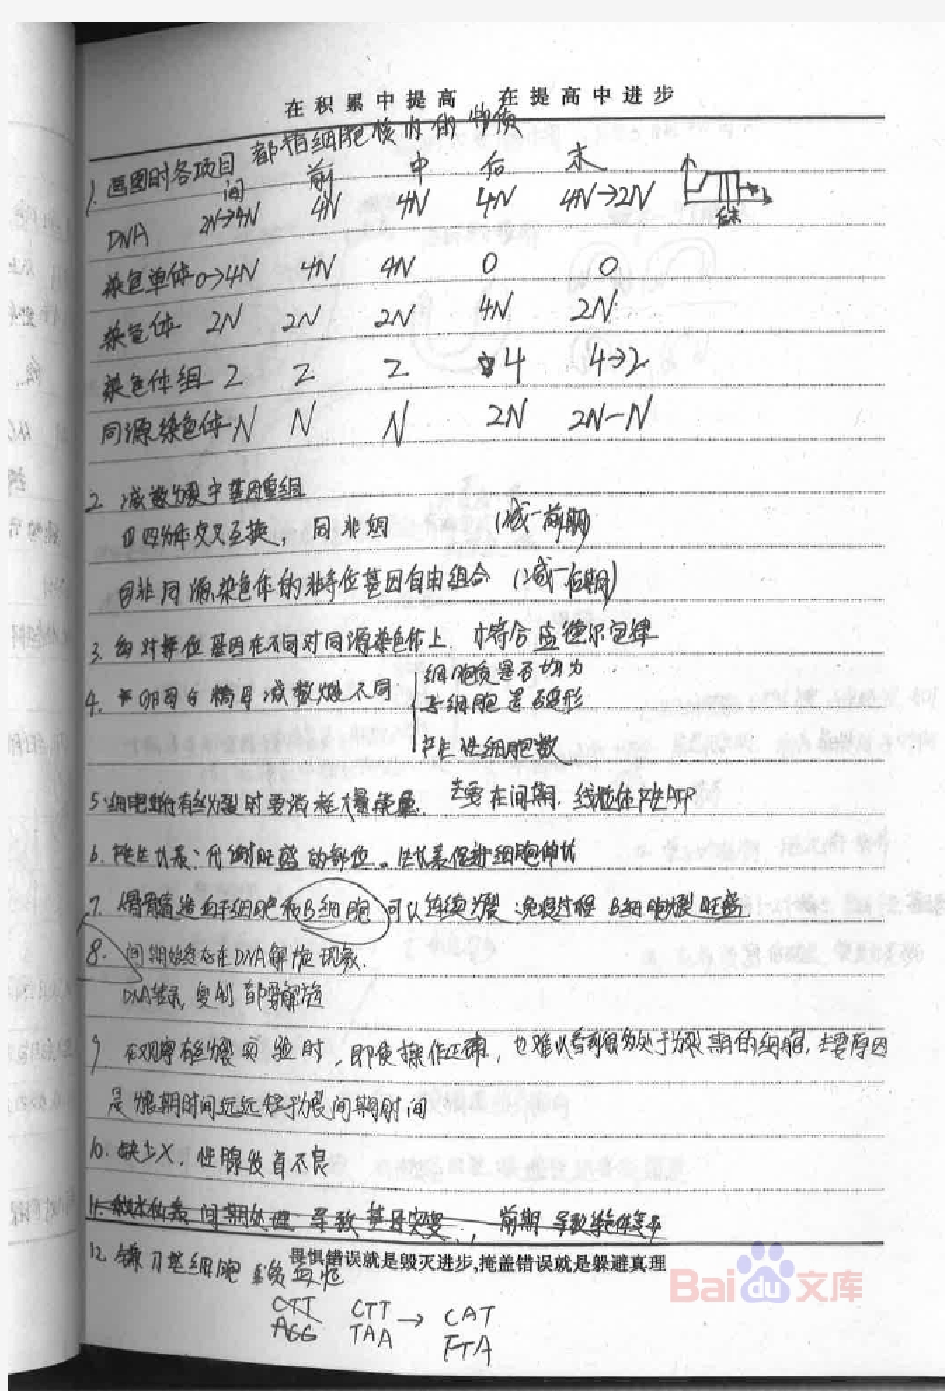 在积累中提高 在提高中进步
1. 画图时各项目 都指细胞核内的物质
间 前 中 后 末
DNA 2N→4N 4N 4N 4N 4N→2N
后末
染色单体 0→4N 4N 4N 0 0
染色体 2N 2N 2N 4N 2N
染色体组 2 2 2 4 4→2
同源染色体 N N N 2N 2N-N
2. 减数分裂中基因重组
①四分体交叉互换, 同非姐 (减一前期)
②非同源染色体的非等位基因自由组合 (减一后期)
3. 每对等位基因在不同对同源染色体上, 才符合孟德尔定律
4. 卵母与精母减数分裂不同 细胞质是否均分
子细胞是否变形
产生性细胞数
5. 细胞进行有丝分裂时要消耗大量能量. 主要在间期. 线粒体产生ATP
6. 产生长素: 代谢旺盛的部位. 生长素促进细胞伸长
7. 骨髓造血干细胞和B细胞可以连续分裂; 免疫过程 B细胞分裂旺盛.
8. 间期始终存在DNA解旋现象.
DNA转录, 复制都要解旋
9. 在观察有丝分裂实验时, 即使操作正确, 也难以看到很多处于分裂期的细胞, 主要原因
是分裂期时间远远短于分裂间期时间
10. 缺少X, 性腺发育不良
11. 间期处理 导致基因突变, 前期 导致染色体变异
12. 镰刀型细胞 贫血症
畏惧错误就是毁灭进步,掩盖错误就是躲避真理
CTT CTT → CAT
AGG TAA GTA
Baidu文库